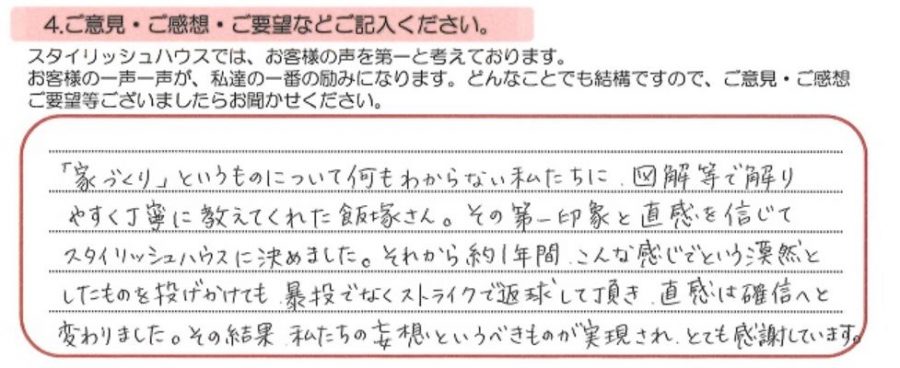 4.ご意見・ご感想・ご要望などご記入ください。
スタイリッシュハウスでは、お客様の声を第一と考えております。
お客様の一声一声が、私達の一番の励みになります。どんなことでも結構ですので、ご意見・ご感想
ご要望等ございましたらお聞かせください。
「家づくり」というものについて何もわからない私たちに、図解等で解り
やすく丁寧に教えてくれた飯塚さん。その第一印象と直感を信じて
スタイリッシュハウスに決めました。それから約1年間、こんな感じでという漠然と
したものを投げかけても、暴投でなくストライクで返球して頂き、直感は確信へと
変わりました。その結果、私たちの妄想というべきものが実現され、とても感謝しています。